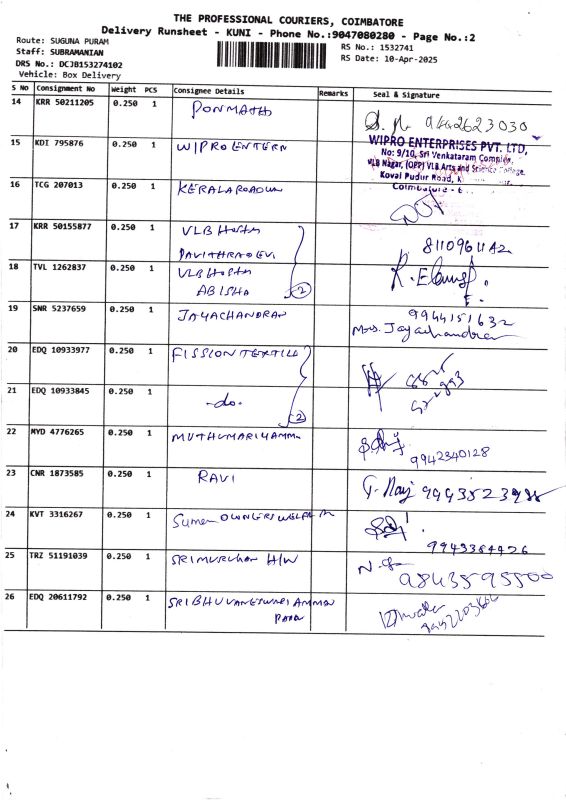 THE PROFESSIONAL COURIERS, COIMBATORE
Delivery Runsheet - KUNI - Phone No.:9047080280 - Page No.:2
Route: SUGUNA PURAM
RS No.: 1532741
Staff: SUBRAMANIAN
RS Date: 10-Apr-2025
DRS No.: DCJB153274102
Vehicle: Box Delivery
S No Consignment No Weight PCS Consignee Details Remarks Seal & Signature
14 KRR 50211205 0.250 1 PONMATHI
15 KDI 795876 0.250 1 WIPRO ENTERN
WIPRO ENTERPRISES PVT. LTD,
No: 9/10, Sri Venkataram Complex,
VLB Nagar, (OPP) VLB Arts and Science College.
Kovai Pudur Road,
Coimbatore - 6
16 TCG 207013 0.250 1
17 KRR 50155877 0.250 1 VLB Hostel
PAVITHRADEVI
8110961142
18 TVL 1262837 0.250 1 VLB Hostel
ABISHA (2)
19 SNR 5237659 0.250 1 JAYACHANDRAN
9944151632
Mrs. Jayachandran
20 EDQ 10933977 0.250 1 FISSION TEXTILE
21 EDQ 10933845 0.250 1 -do- (2)
22 MYD 4776265 0.250 1 MUTHUMARIYAMMA
9942340128
23 CNR 1873585 0.250 1 RAVI
24 KVT 3316267 0.250 1 Suman OWNERS WELFARE
9943384426
25 TRZ 51191039 0.250 1 SRIMURUGAN H/W
9843595500
26 EDQ 20611792 0.250 1 SRI BHUVANESWARI AMMAN